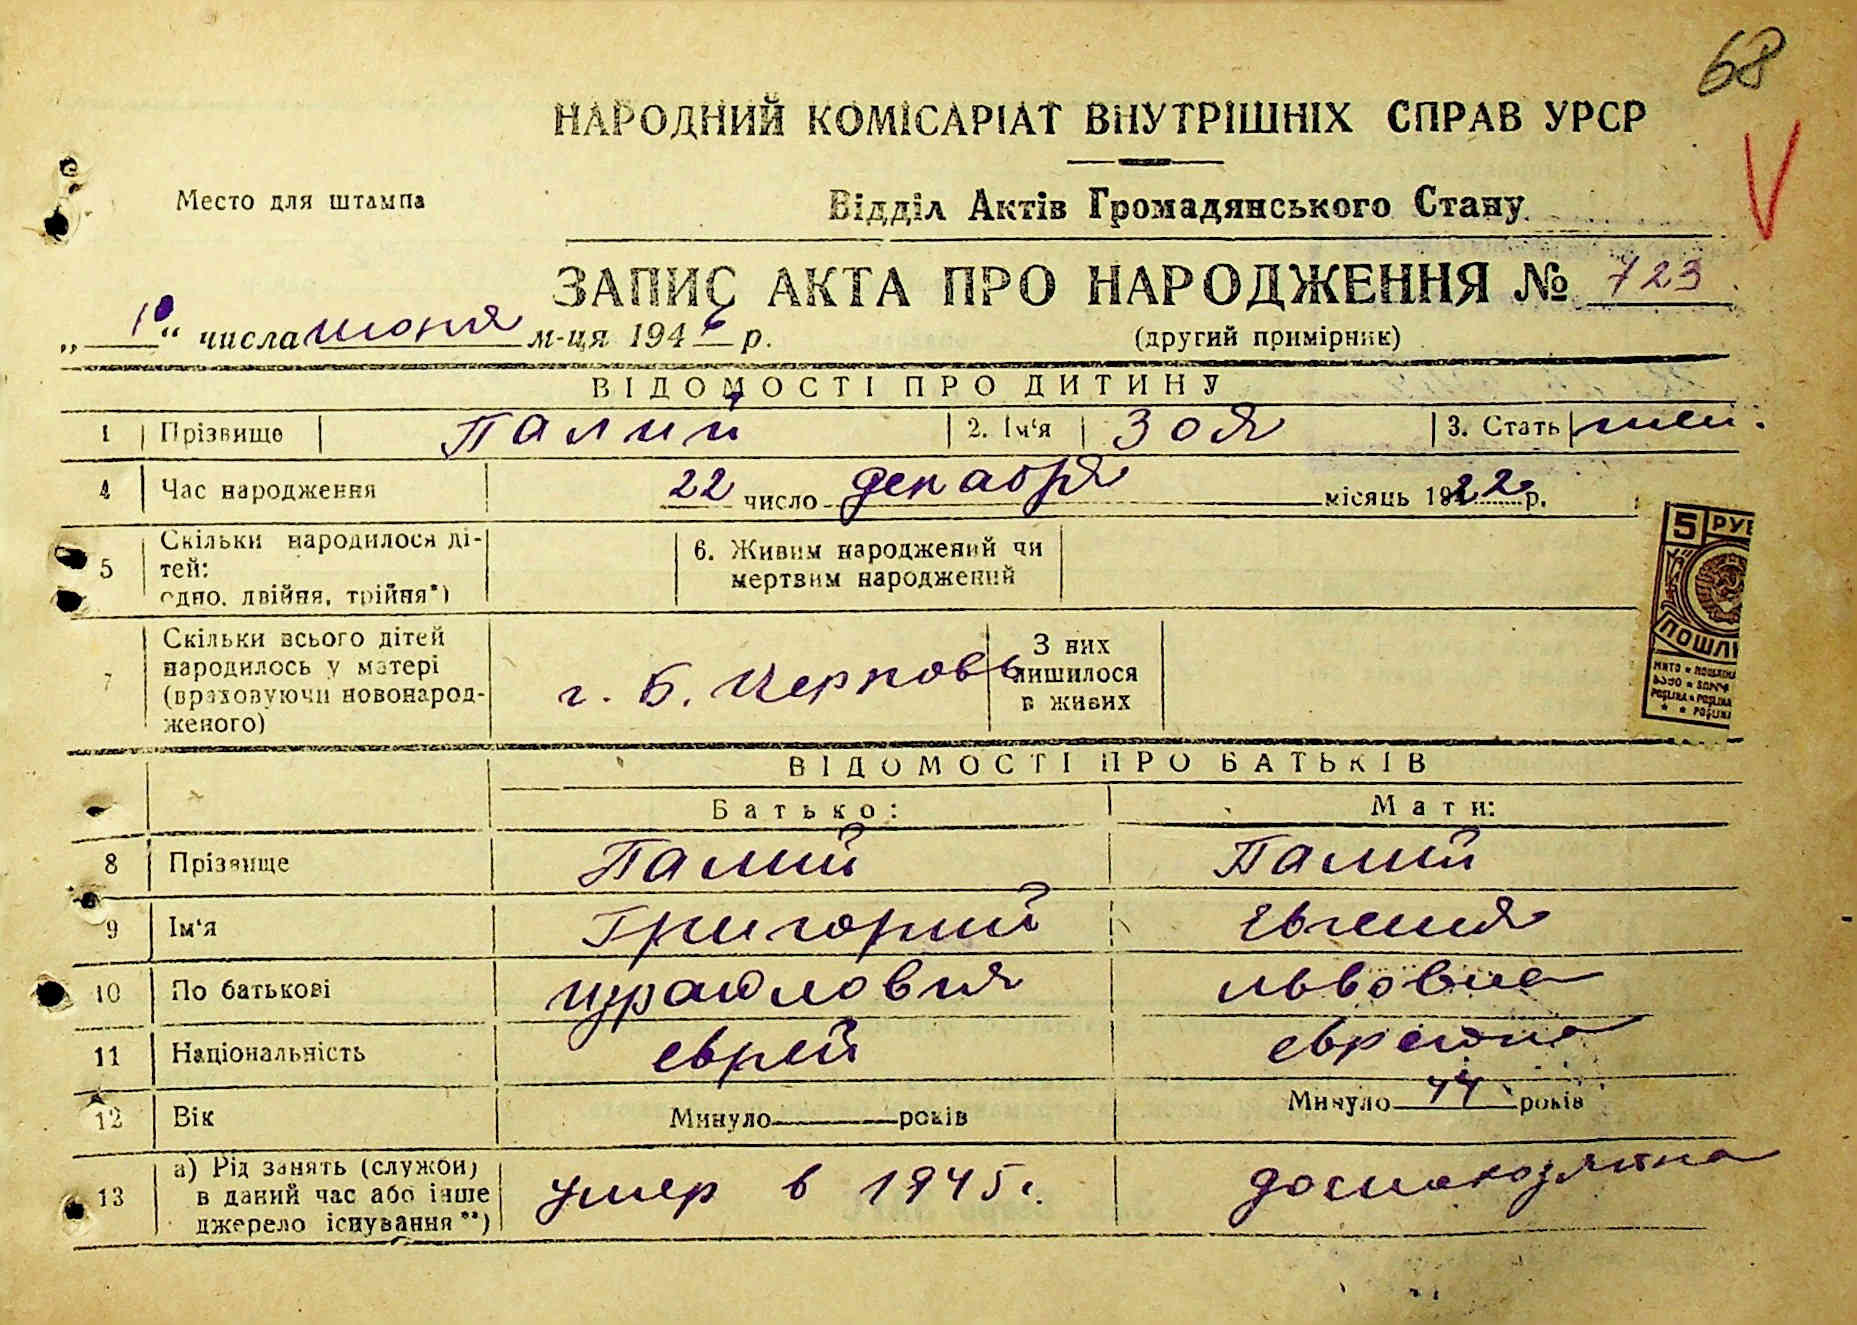 68
НАРОДНИЙ КОМІСАРІАТ ВНУТРІШНІХ СПРАВ УРСР
Место для штампа
Відділ Актів Громадянського Стану
ЗАПИС АКТА ПРО НАРОДЖЕННЯ № 723
„ 10 “ числа июня м-ця 1946 р.
(другий примірник)
ВІДОМОСТІ ПРО ДИТИНУ
1 Прізвище Палий 2. Ім‘я Зоя 3. Стать жен.
4 Час народження 22 число декабря місяць 1922 р.
5 Скільки народилося ді-
тей:
одно, двійня, трійня*)
6. Живим народжений чи
мертвим народжений
7 Скільки всього дітей
народилось у матері
(враховуючи новонарод-
женого)
г. Б. Церковь
З них
лишилося
в живих
5 РУБ
ПОШЛИ
ВІДОМОСТІ ПРО БАТЬКІВ
Батько: Мати:
8 Прізвище Палий Палий
9 Ім‘я Григорий Евгения
10 По батькові Израйлович Львовна
11 Національність еврей еврейка
12 Вік Минуло років Минуло 44 років
13 а) Рід занять (служби)
в даний час або інше
джерело існування**)
умер в 1945 г. домохозяйка